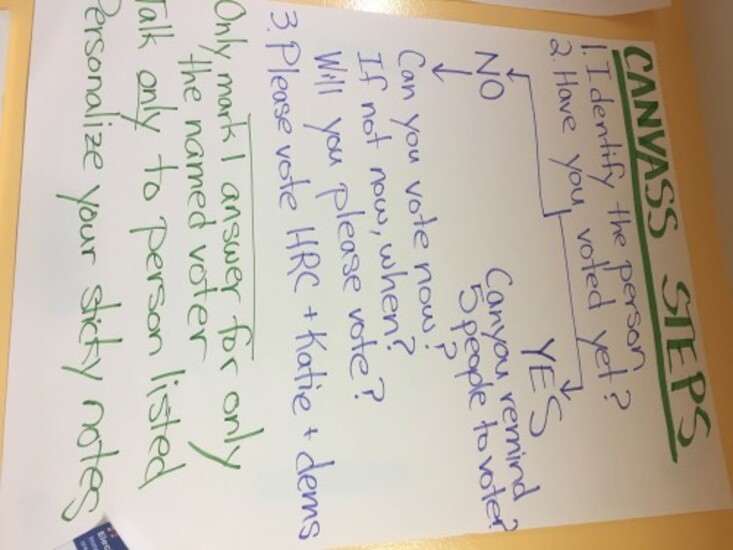 CANVASS STEPS
1. Identify the person
2. Have you voted yet?
NO
YES
Can you vote now?
If not now, when?
Will you please vote?
Can you remind
5 people to vote?
3. Please vote HRC + Katie + dems
Only mark 1 answer for only
the named voter
Talk only to person listed
Personalize your sticky notes